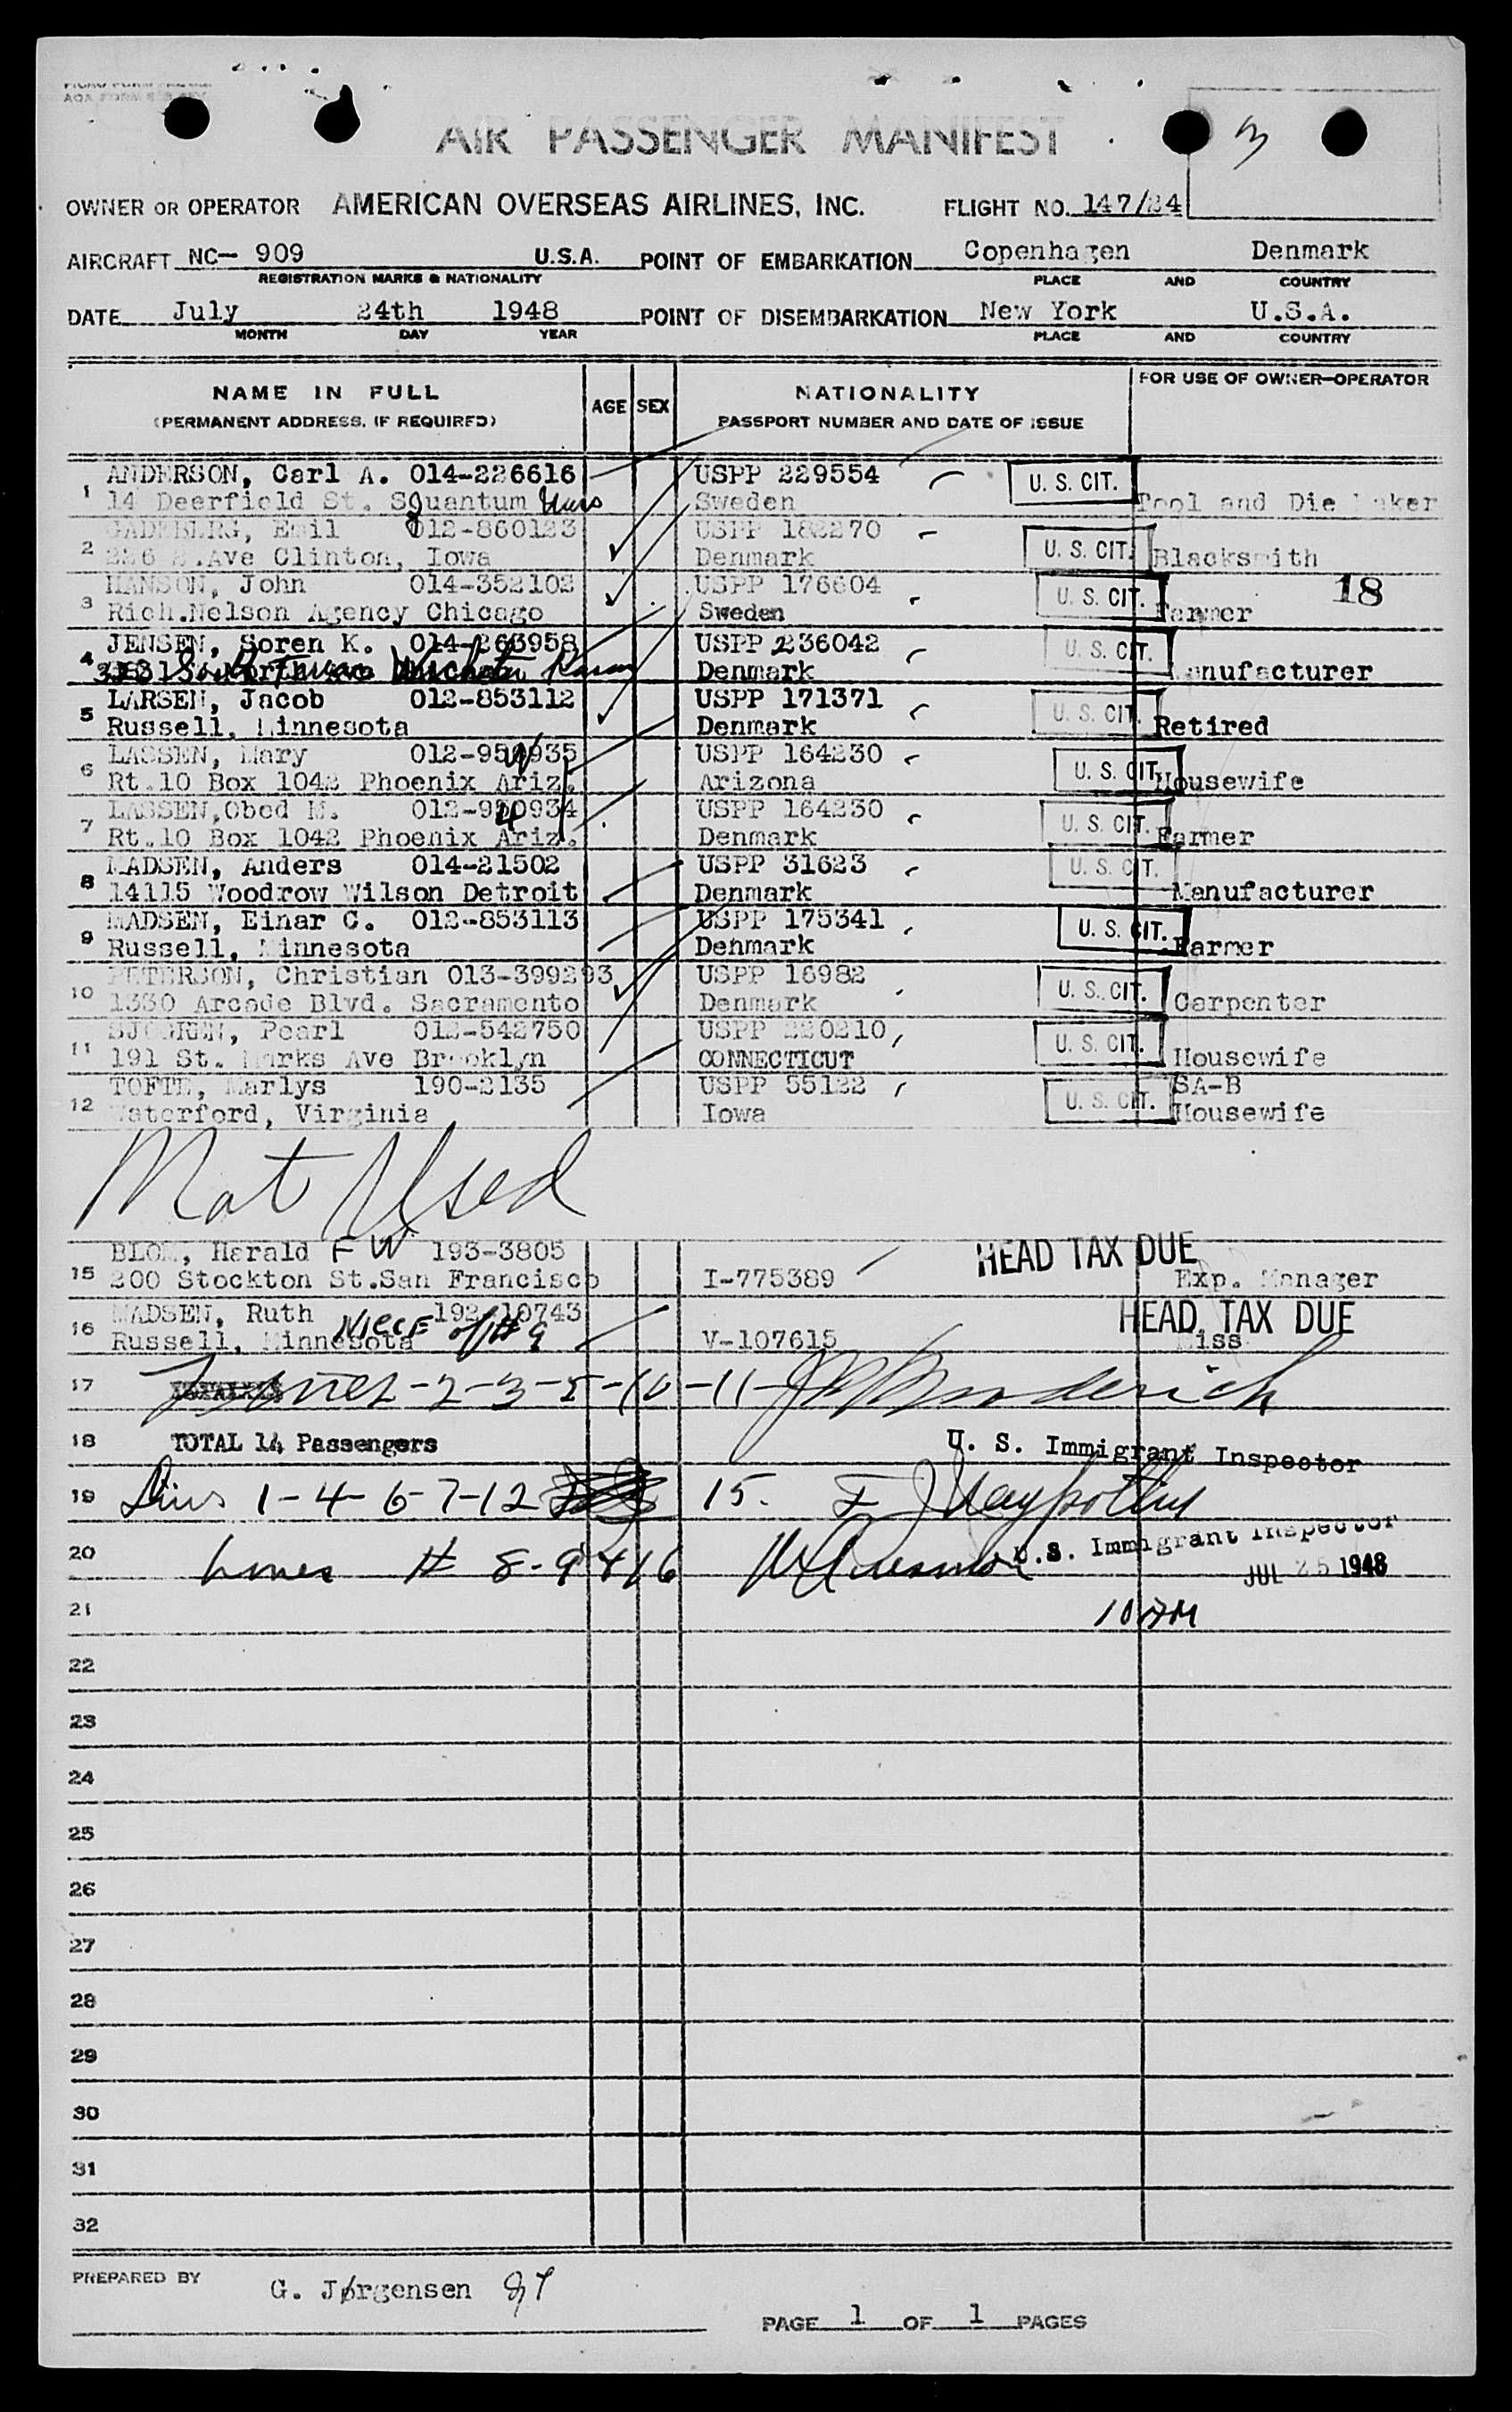 3
AIR PASSENGER MANIFEST
OWNER OR OPERATOR AMERICAN OVERSEAS AIRLINES, INC. FLIGHT NO. 147/24
AIRCRAFT NC- 909 U.S.A. POINT OF EMBARKATION Copenhagen Denmark
REGISTRATION MARKS & NATIONALITY PLACE AND COUNTRY
DATE July 24th 1948 POINT OF DISEMBARKATION New York U.S.A.
MONTH DAY YEAR PLACE AND COUNTRY
NAME IN FULL AGE SEX NATIONALITY FOR USE OF OWNER-OPERATOR
(PERMANENT ADDRESS, IF REQUIRED) PASSPORT NUMBER AND DATE OF ISSUE
1 ANDERSON, Carl A. 014-226616 USPP 229554 U. S. CIT.
14 Deerfield St. Squantum Sweden Tool and Die Maker
2 Emil 012-860123 USPP 182270 U. S. CIT.
Ave Clinton, Iowa Denmark Blacksmith
3 HANSON, John 014-352102 USPP 176604 U. S. CIT. 18
Rich.Nelson Agency Chicago Sweden Farmer
4 JENSEN, Soren K. 014-263958 USPP 236042 U. S. CIT.
Denmark Manufacturer
5 LARSEN, Jacob 012-853112 USPP 171371 U. S. CIT.
Russell, Minnesota Denmark Retired
6 LASSEN, Mary USPP 164230 U. S. CIT.
Rt.10 Box 1042 Phoenix Ariz. Arizona Housewife
7 LASSEN,Obed M. USPP 164230 U. S. CIT.
Rt.10 Box 1042 Phoenix Ariz. Denmark Farmer
8 MADSEN, Anders 014-21502 USPP 31623 U. S. CIT.
14115 Woodrow Wilson Detroit Denmark Manufacturer
9 MADSEN, Einar C. 012-853113 USPP 175341 U. S. CIT.
Russell, Minnesota Denmark Farmer
10 PETERSON, Christian 013-399293 USPP 16982 U. S. CIT.
1330 Arcade Blvd. Sacramento Denmark Carpenter
11 Pearl 012-542750 USPP 220210 U. S. CIT.
191 St. Marks Ave Brooklyn CONNECTICUT Housewife
12 TOFTE, Marlys 190-2135 USPP 55122 U. S. CIT. SA-B
Waterford, Virginia Iowa Housewife
Not Used
15 BLOM, Harald F W 193-3805 HEAD TAX DUE
200 Stockton St.San Francisco I-775389 Exp. Manager
16 MADSEN, Ruth 192-10743 HEAD TAX DUE
Russell, Minnesota NIECE of #9 V-107615 Miss
17 -2-3-5-10-11-
18 TOTAL 14 Passengers U. S. Immigrant Inspector
19 1-4-6-7-12 15.
20 # 8-9 & 16 U.S. Immigrant Inspector
JUL 25 1948
21 10 AM
22
23
24
25
26
27
28
29
30
31
32
PREPARED BY G. Jørgensen
PAGE 1 OF 1 PAGES